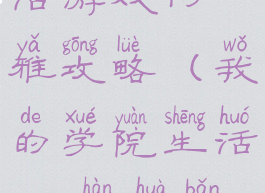 活游戏内
yǎ gōng lüè wǒ
雅攻略（我
de xué yuàn shēng huó
的学院生活
hàn huà bǎn